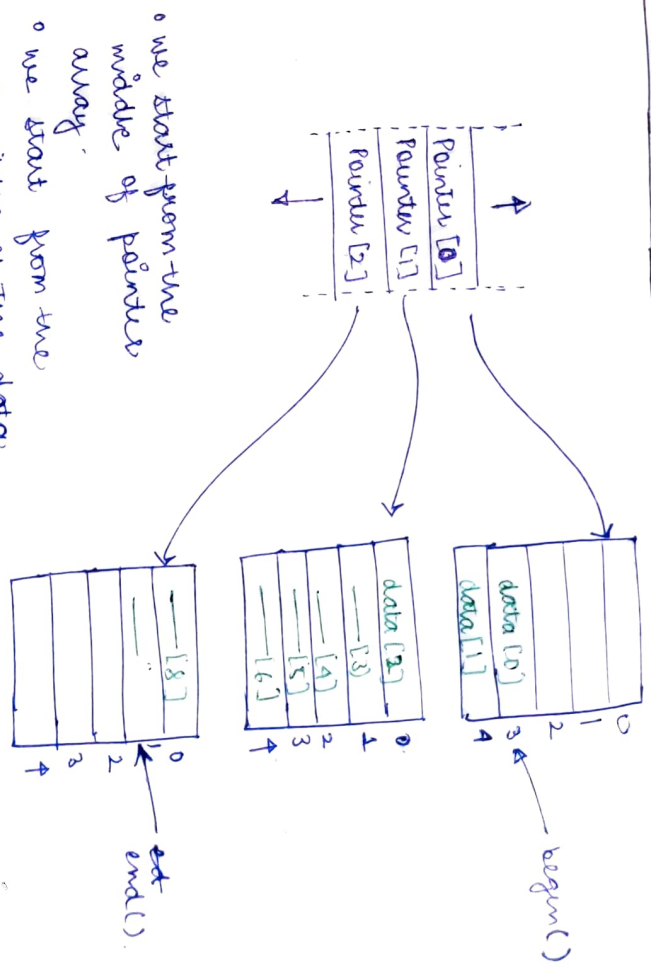 Pointer [0]
Pointer [1]
Pointer [2]
0
1
2
data [0] 3
data [1] 4
begin()
data [2] 0
[3] 1
[4] 2
[5] 3
[6] 4
[8] 0
1
2
3
4
end().
• we start from the
middle of pointer
array.
• we start from the
data